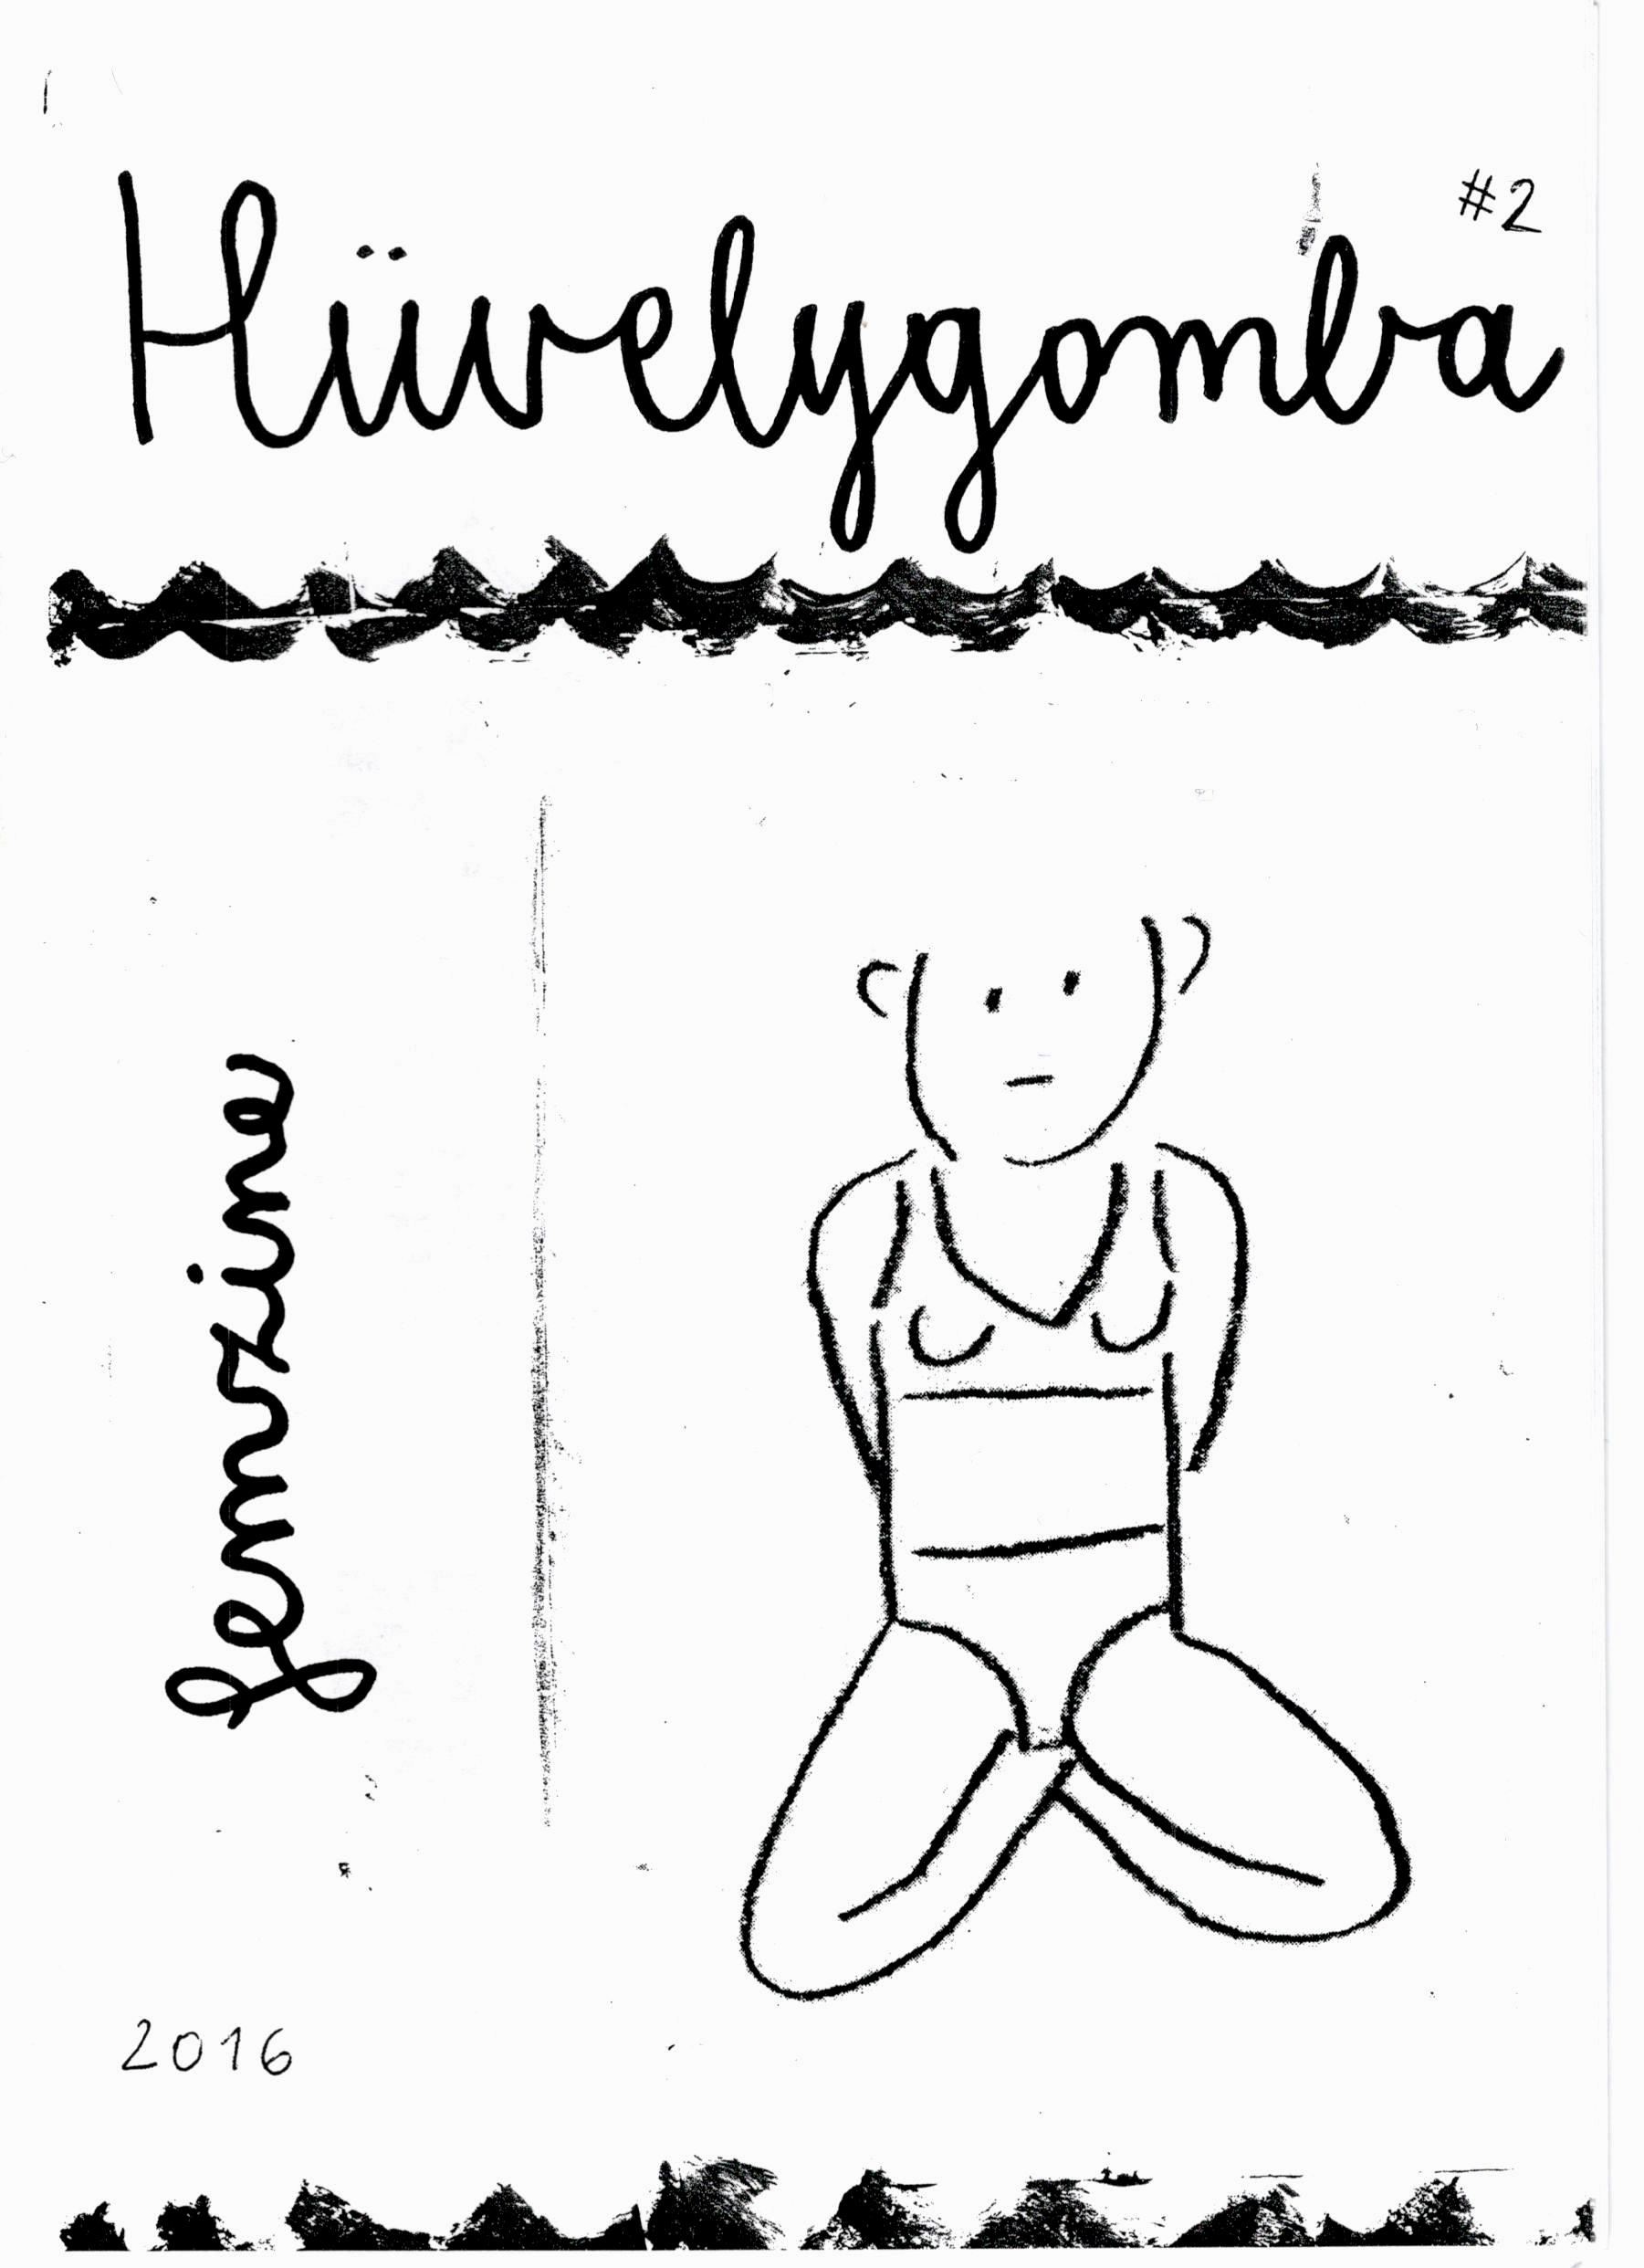 #2
Hüvelygomba
femzine
2016